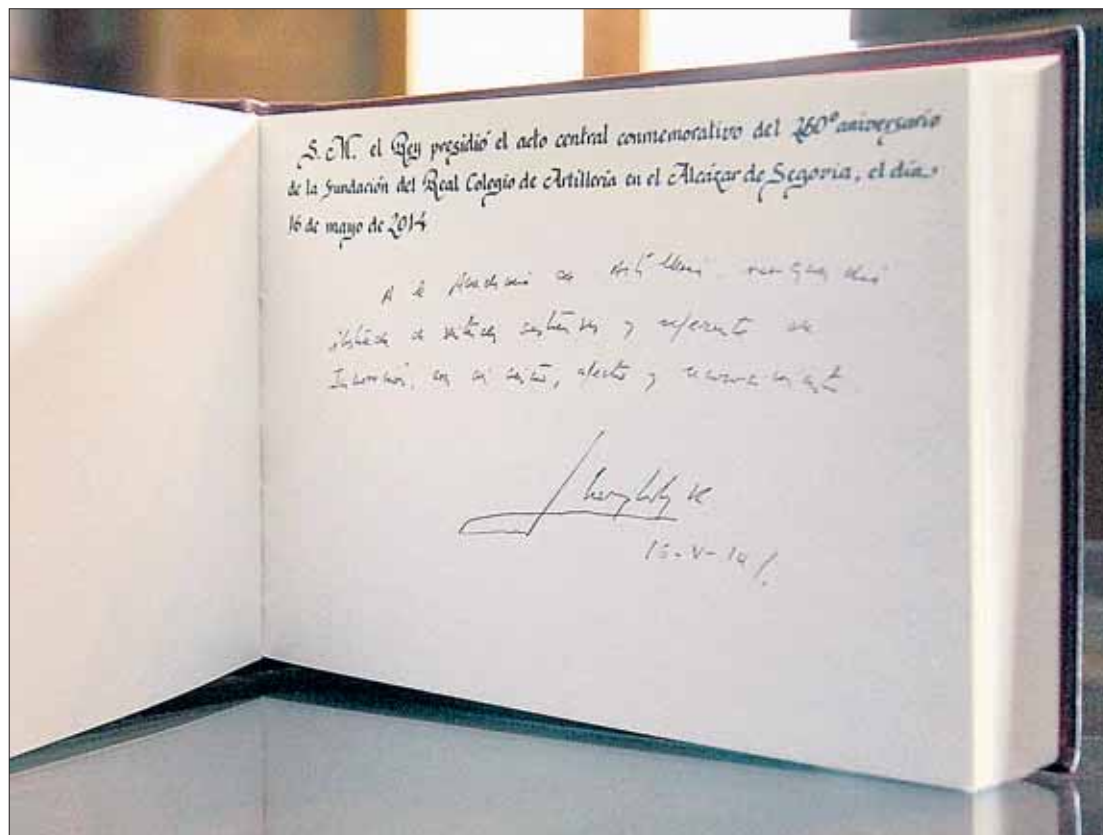 S. M. el Rey presidió el acto central conmemorativo del 250º aniversario
de la Fundación del Real Colegio de Artillería en el Alcázar de Segovia, el día
16 de mayo de 2014
A la Academia de Artillería
y referente de
afecto y reconocimiento
16-V-14